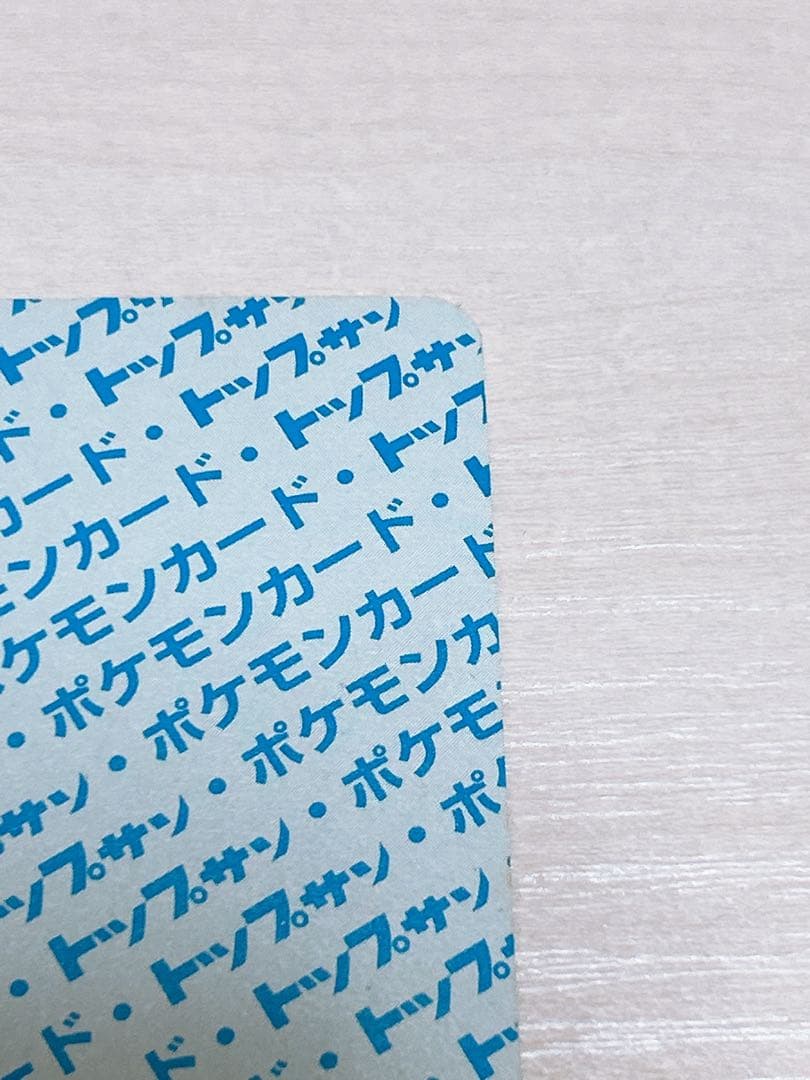 トップサ
ド・トップサ
カード・トップサン
ンカード・トップサ
ケモンカード・トップ
・ポケモンカード・ト
サン・ポケモンカード
ップサン・ポケモンカ
・トップサン・ポケモ
ド・トップサン・ポ
ド・トップサン
・トップ
ト